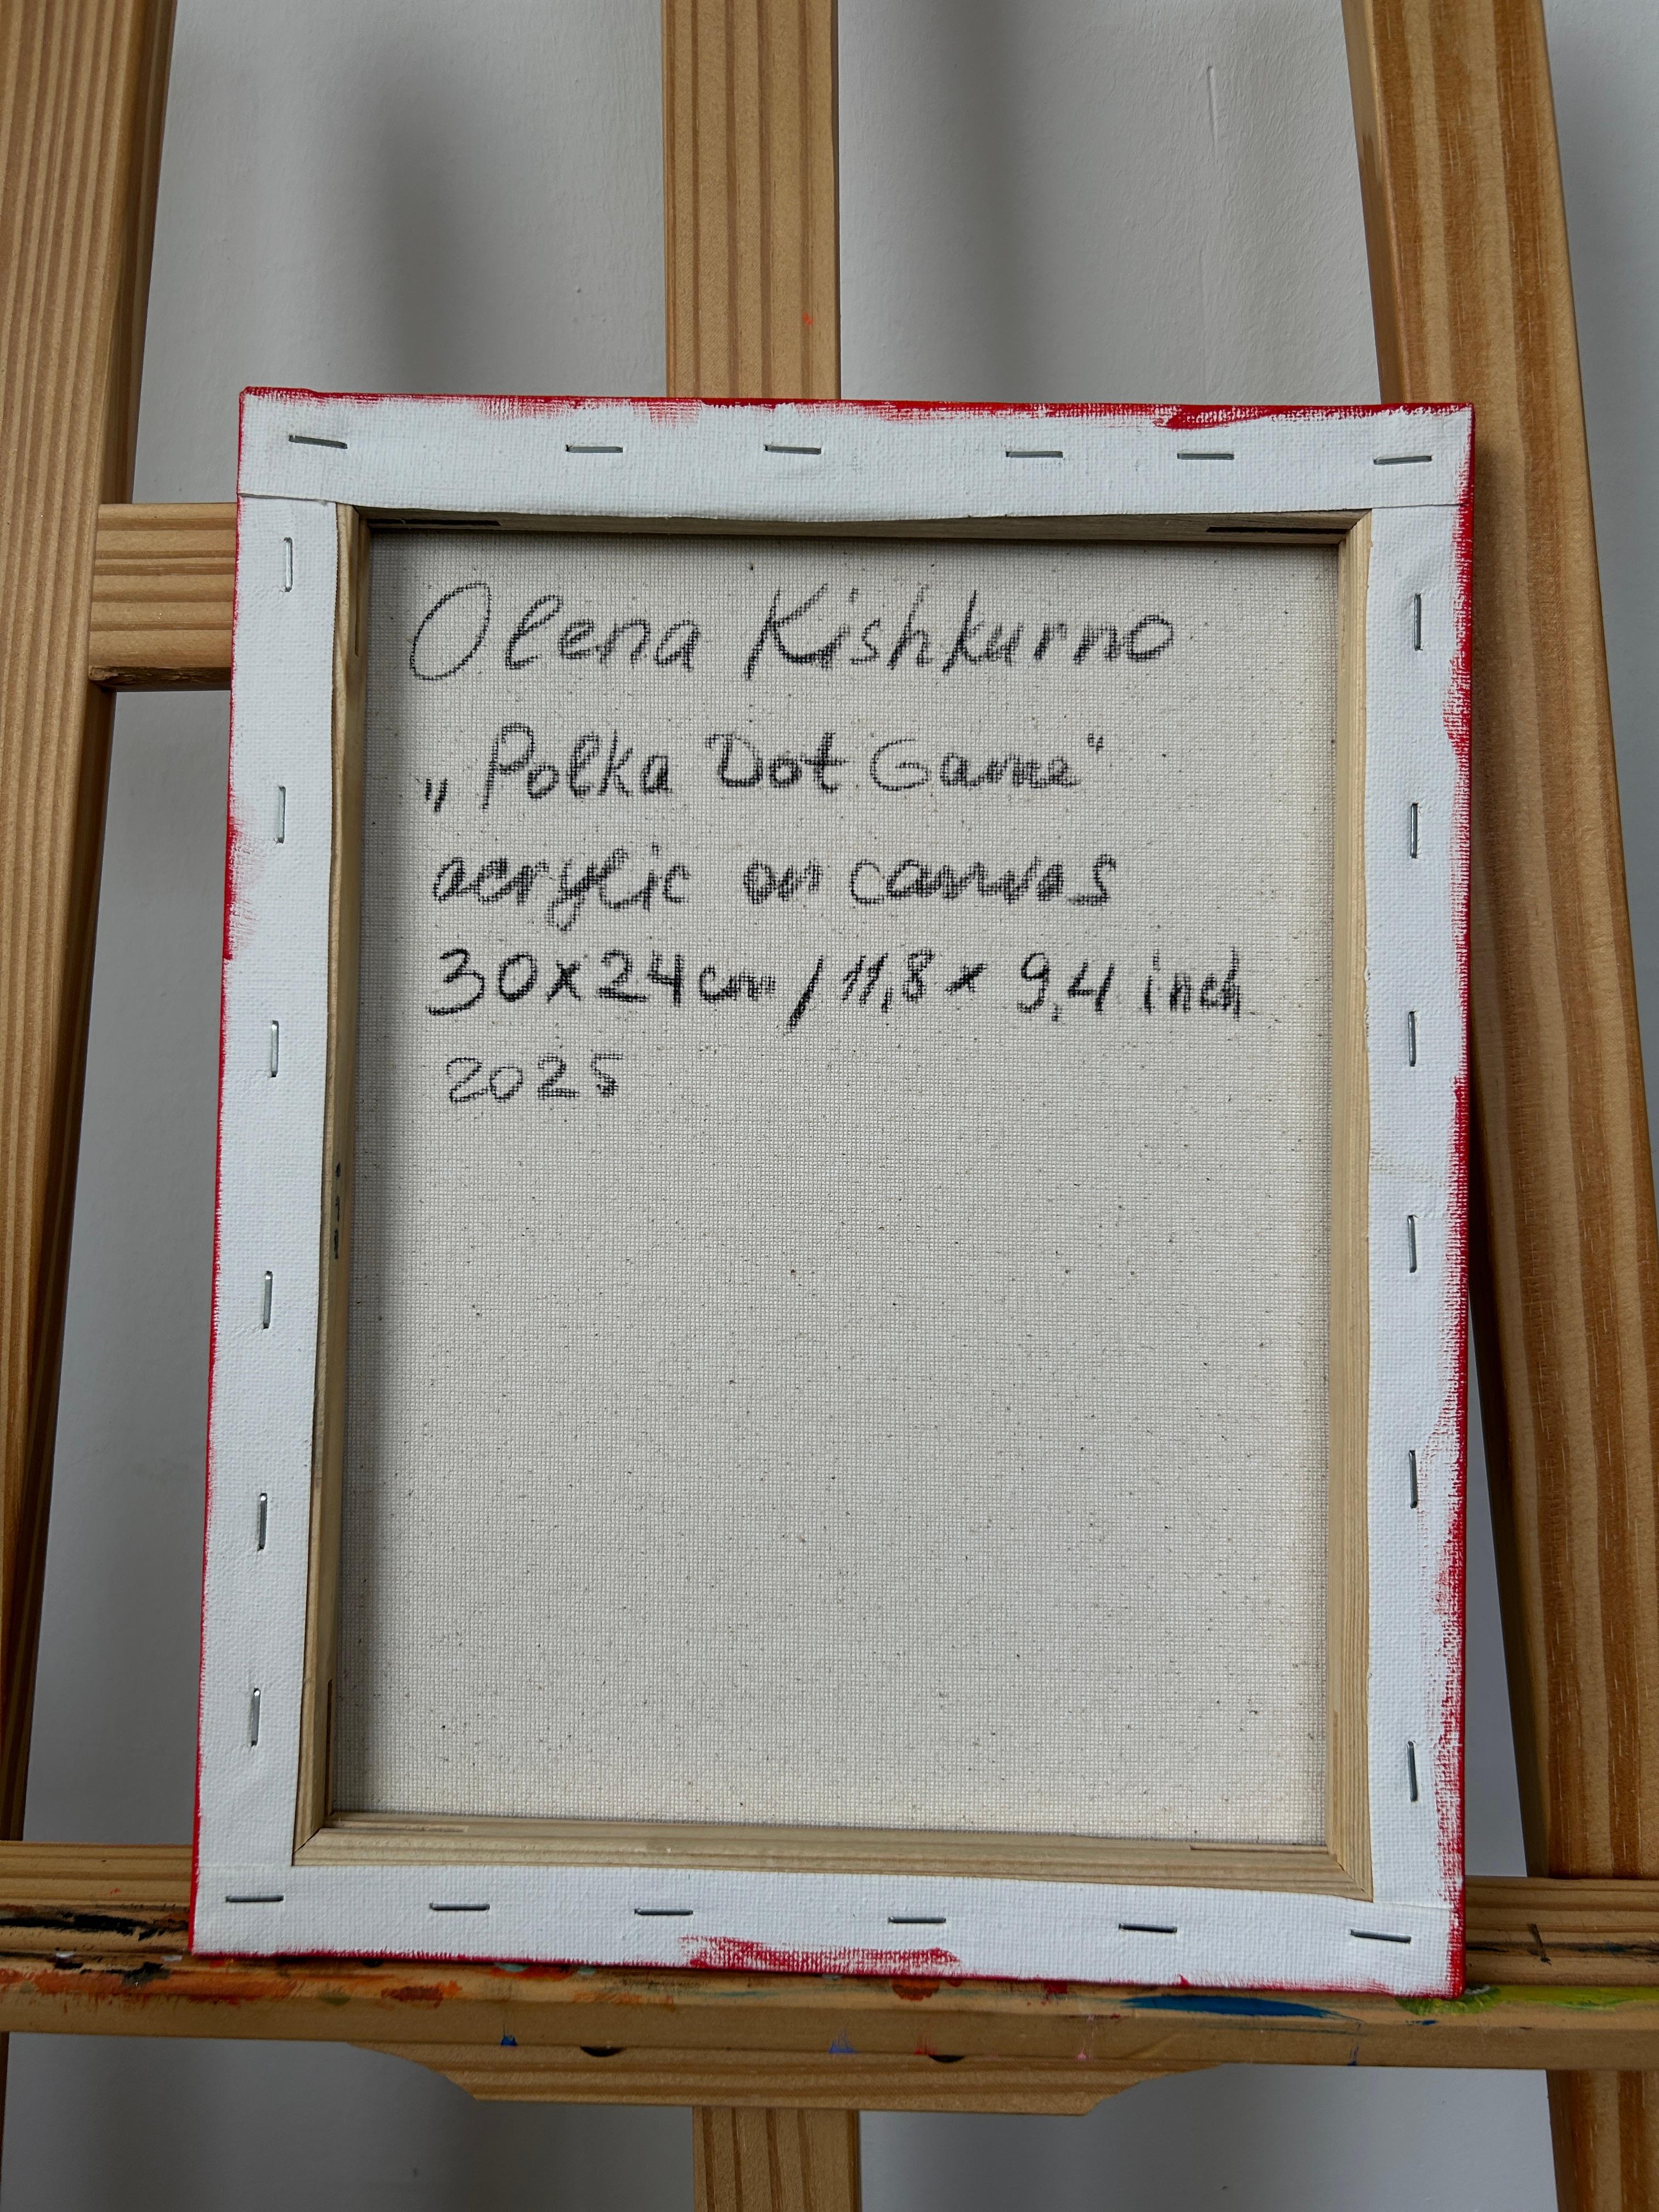 Olena Kishkurno
„Polka Dot Game“
acrylic on canvas
30x24cm / 11,8 x 9,4 inch
2025